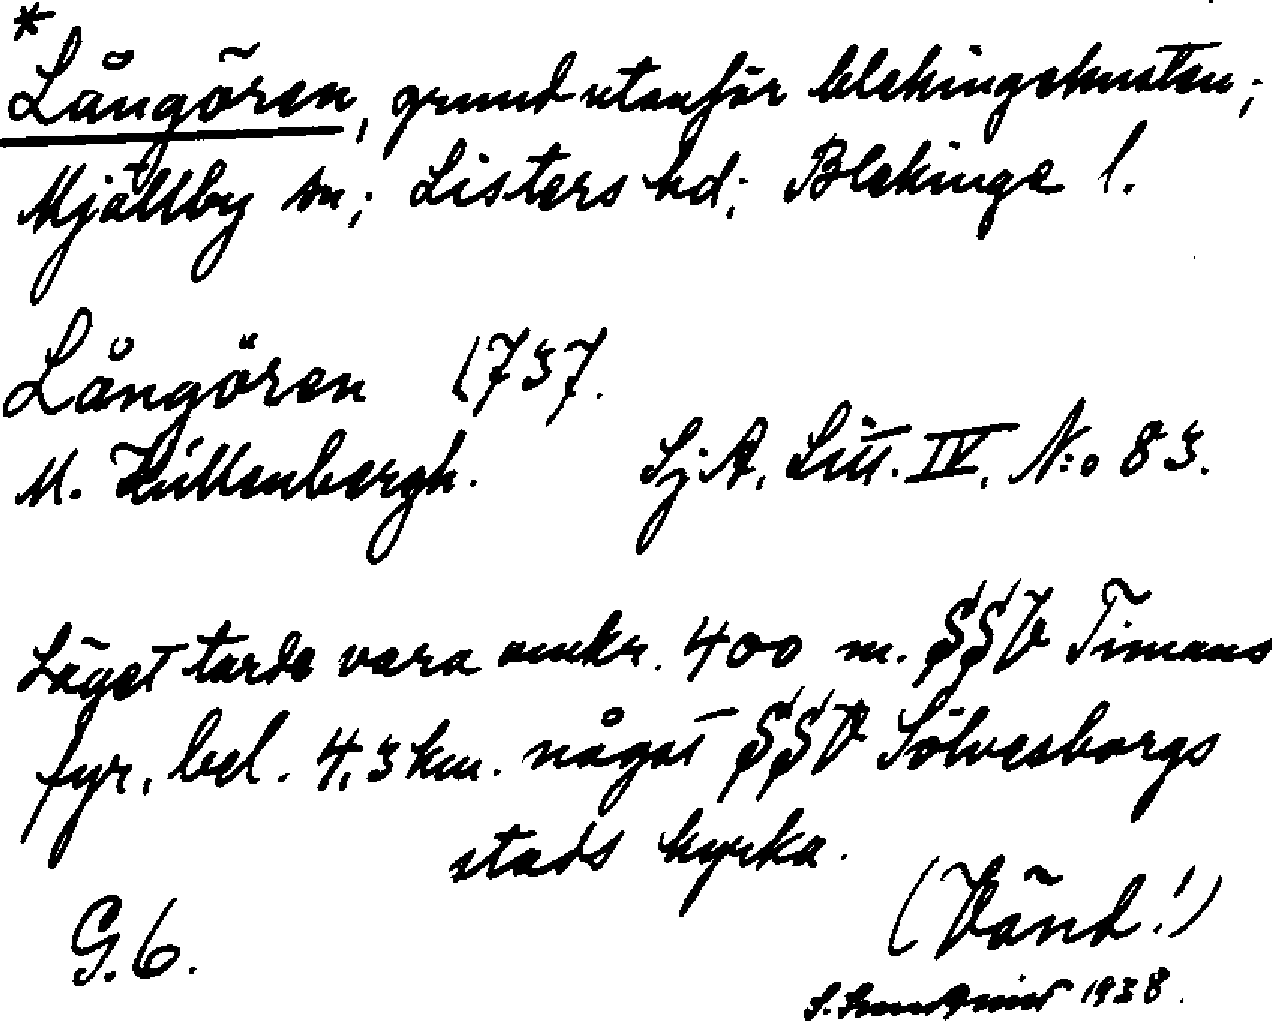 *
Långören, grund utanför blekingekusten;
Mjällby sn; Listers hd; Blekinge l.
Långören 1737.
M. Hüllenbergh. Sj.A. Litt. IV. N:o 83.
Läget torde vara omkr. 400 m. SSV Timans
fyr, bel. 4,3 km. något SSV Sölvesborgs
stads kyrka.
(Vänd!)
G.6.
S. 1938.